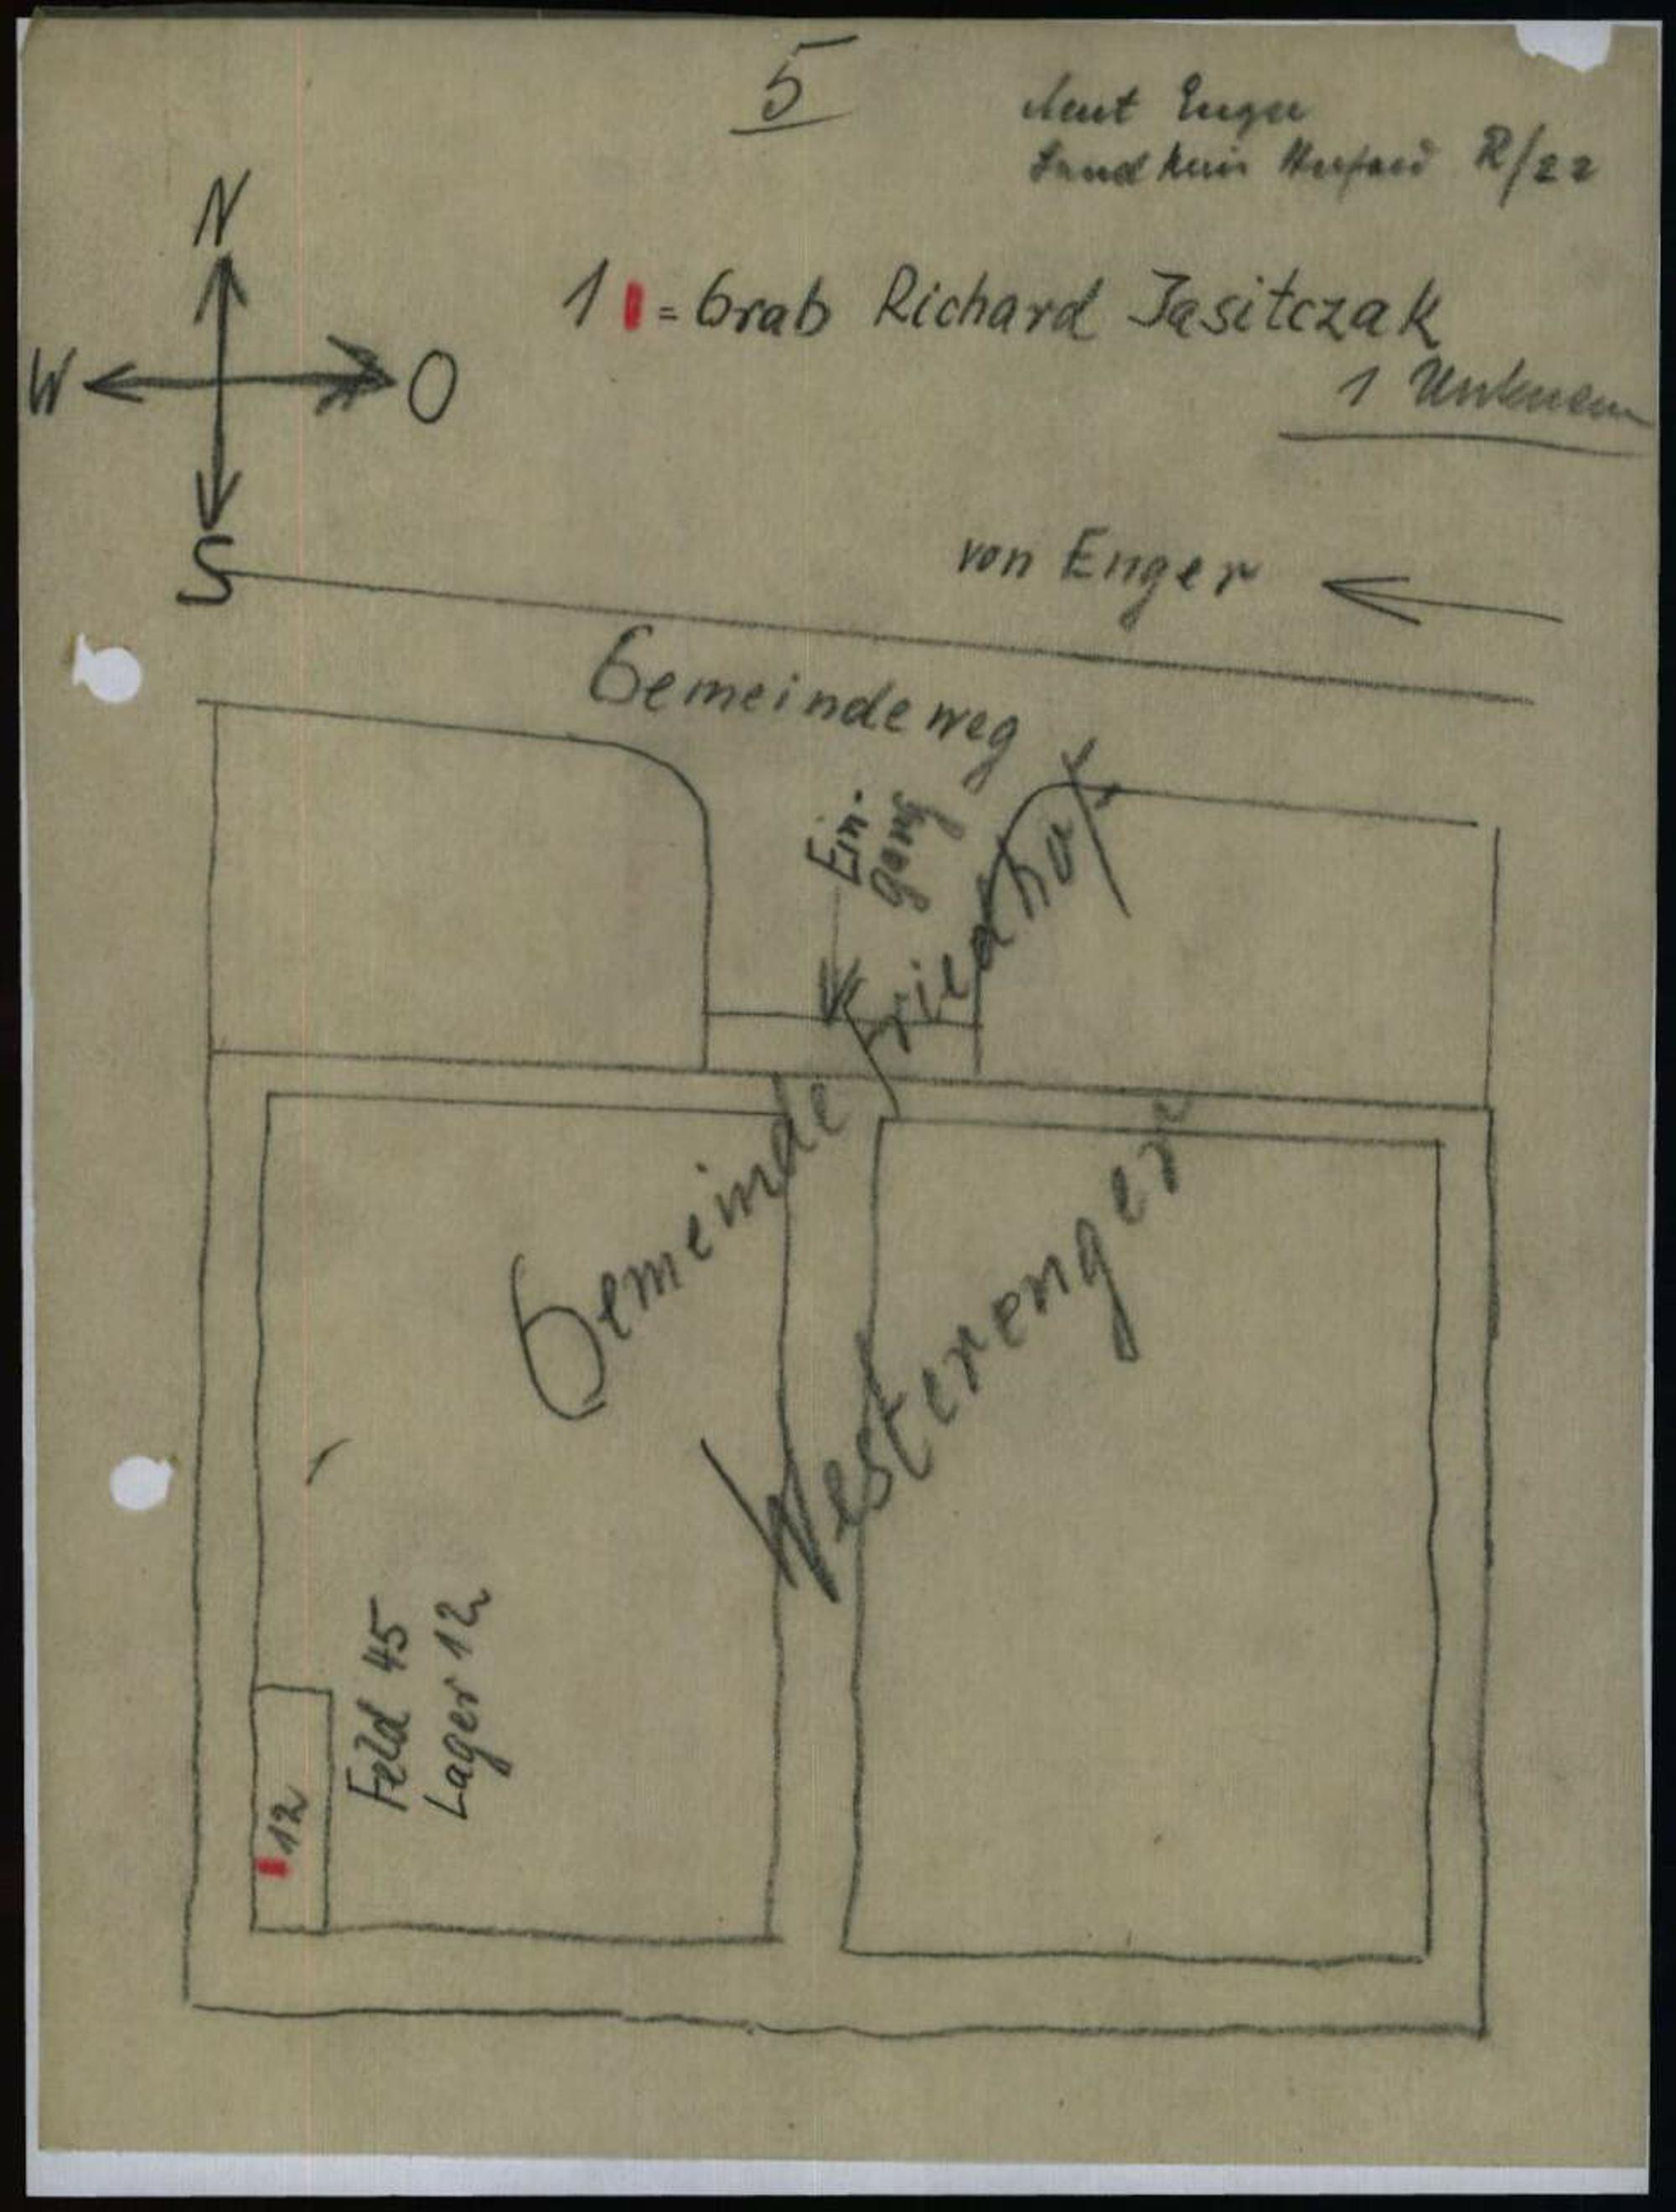 5
Amt Enger
Landkreis Herford R/22
N
W O
S
1 = Grab Richard Jasitczak
1 Unbekannt
von Enger
Gemeindeweg
Ein-
gang
Gemeinde Friedhof
Westerenger
Feld 45
Lager 12
12